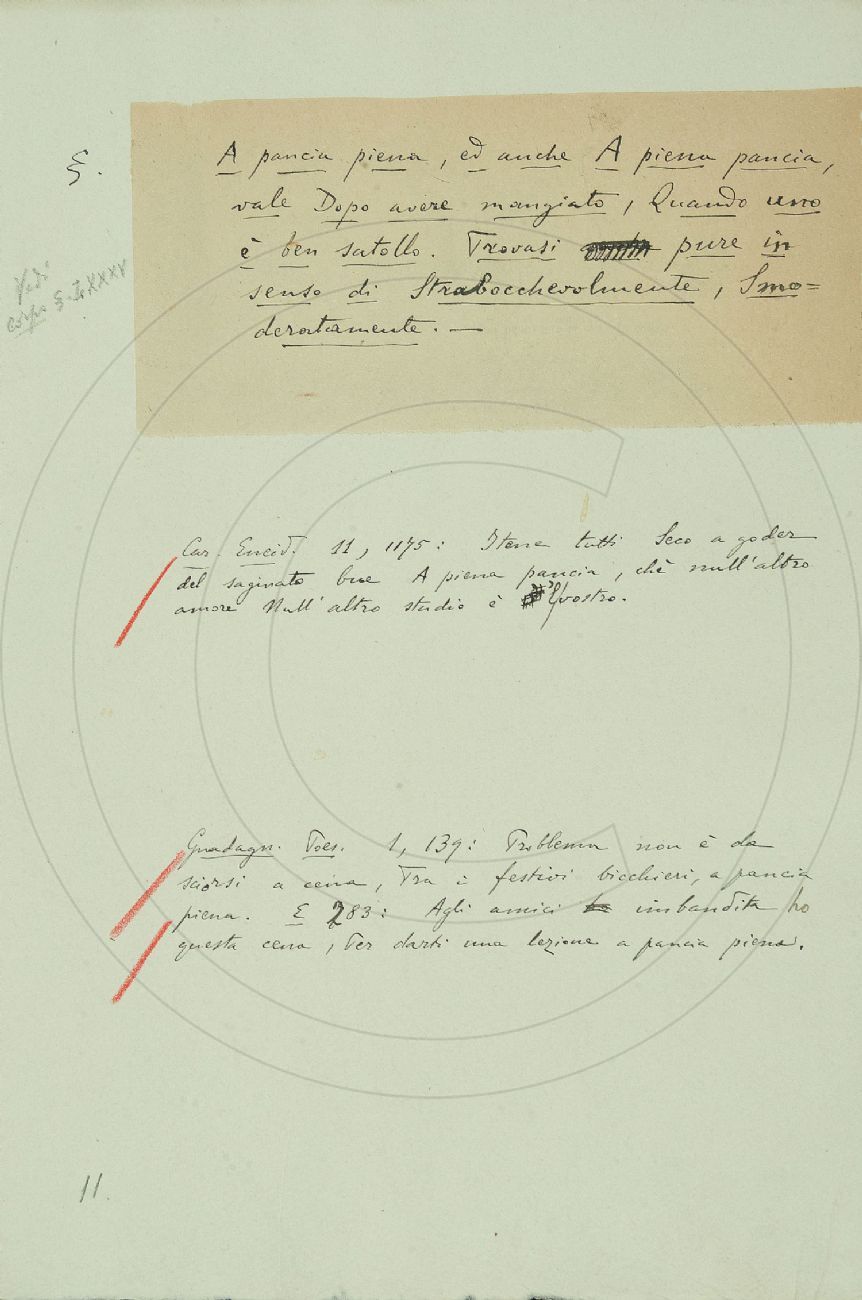 §.
A pancia piena, ed anche A piena pancia,
vale Dopo avere mangiato, Quando uno
è ben satollo. Trovasi pure in
senso di Strabocchevolmente, Smo=
deratamente. —
Vedi
corpo §. LXXXV
Car. Eneid. 11, 1175: Itene tutti Seco a goder
del saginato bue A piena pancia, chè null'altro
amore Null'altro studio è 'l vostro.
Guadagn. Poes. 1, 139: Problema non è da
sciorsi a cena, Tra i festivi bicchieri, a pancia
piena. E 283: Agli amici imbandita ho
questa cena, Per darti una lezione a pancia piena.
11.